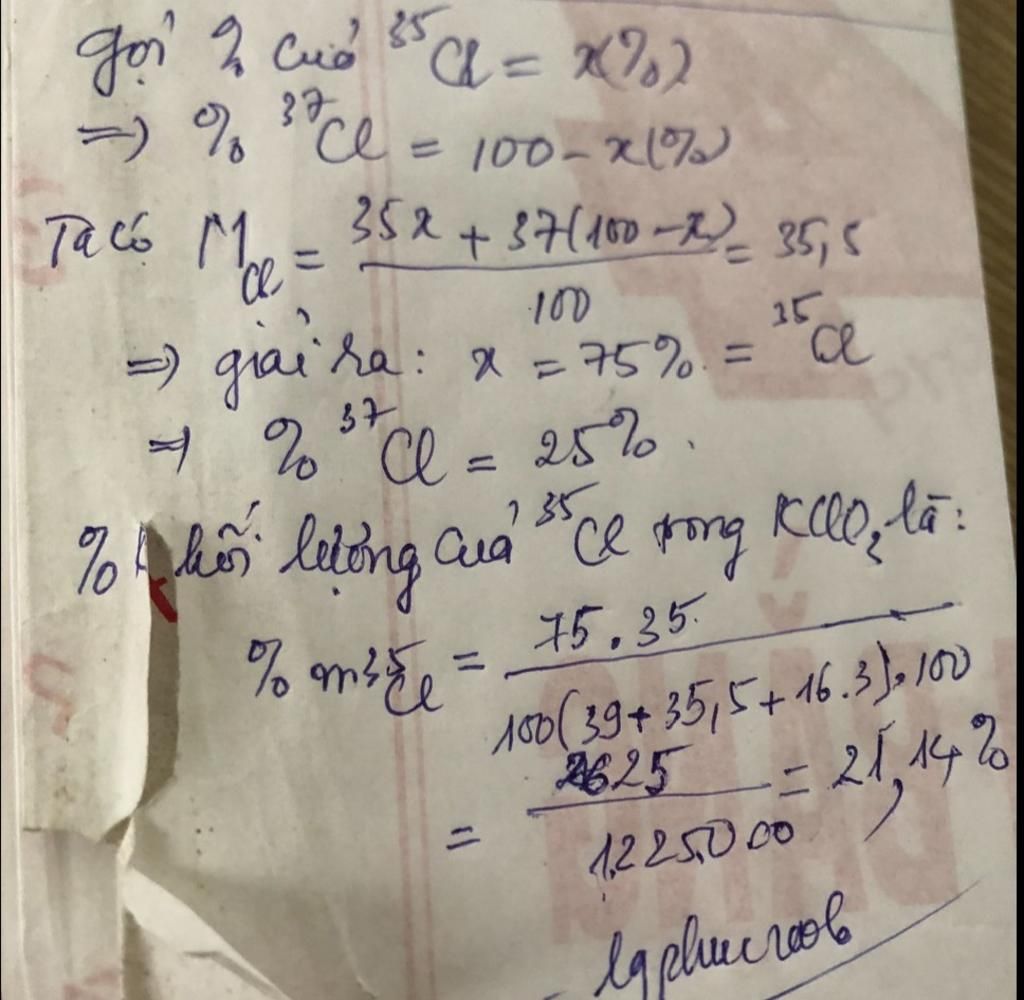 Gọi % của ³⁵Cl = x(%)
=> % ³⁷Cl = 100 - x(%)
Ta có M_Cl = (35x + 37(100 - x)) / 100 = 35,5
=> giải ra: x = 75% = ³⁵Cl
=> % ³⁷Cl = 25%.
% khối lượng của ³⁵Cl trong KClO₃ là:
% m ³⁵Cl = 75.35 / 100(39 + 35,5 + 16.3).100
= 2625 / 1225000 = 21,14%